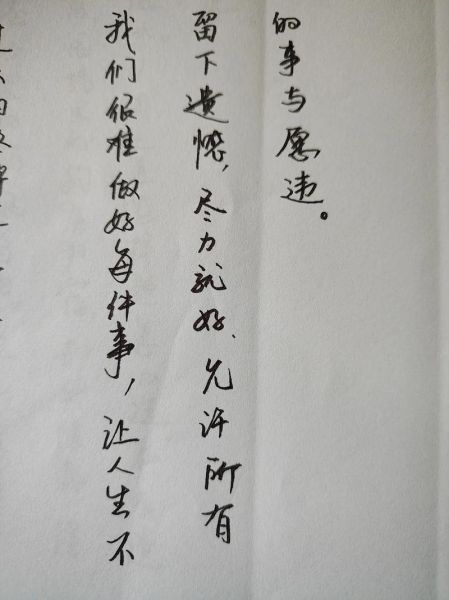 我们很难做好每件事，让人生不
留下遗憾，尽力就好、允许所有
的事与愿违。